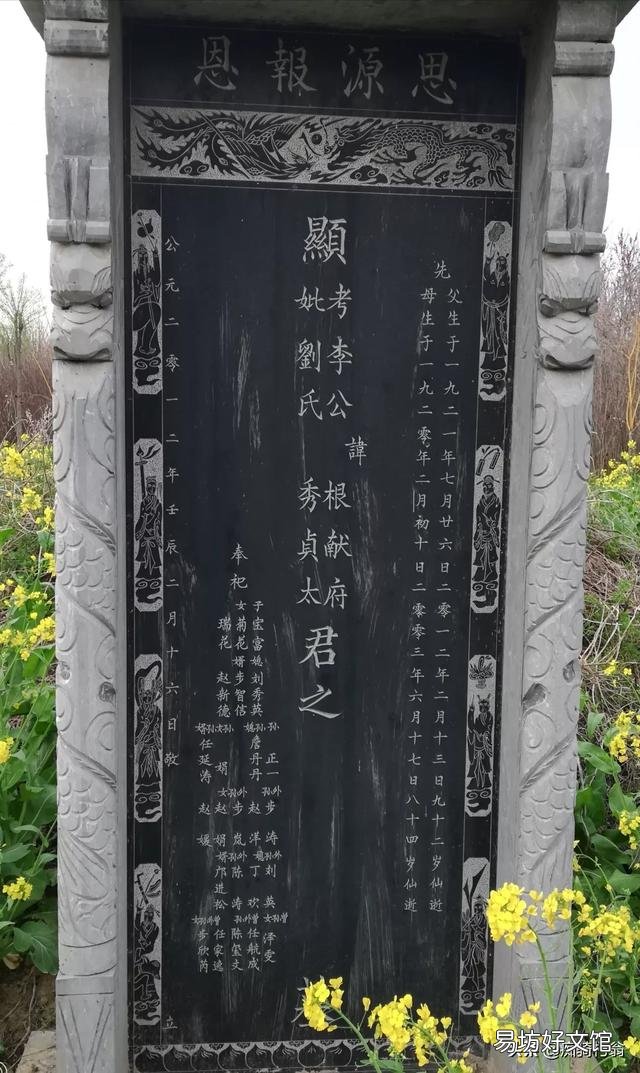 思源報恩
先
父生于一九二一年七月廿六日二零一二年二月十三日九十二岁仙逝
母生于一九二零年二月初十日二零零三年六月十七日八十四岁仙逝
顯
考李公
諱
根献府
妣劉氏
秀貞太
君之
奉祀
子宝富媳刘秀英
女菊花婿步智信
瑞花 赵新德
孙 正一
孙媳 詹丹丹
孙女 娟
孙婿 任延涛
外孙 步涛
赵洋
外孙媳 刘英
丁欢
外孙女 步岚
赵娟
赵媛
外孙婿 陈涛
邝进松
曾孙女 泽雯
曾外孙 任航成
陈玺丞
曾外孙女 任家逸
步欣芮
公元二零一二年壬辰二月十六日敬立
易坊好文馆